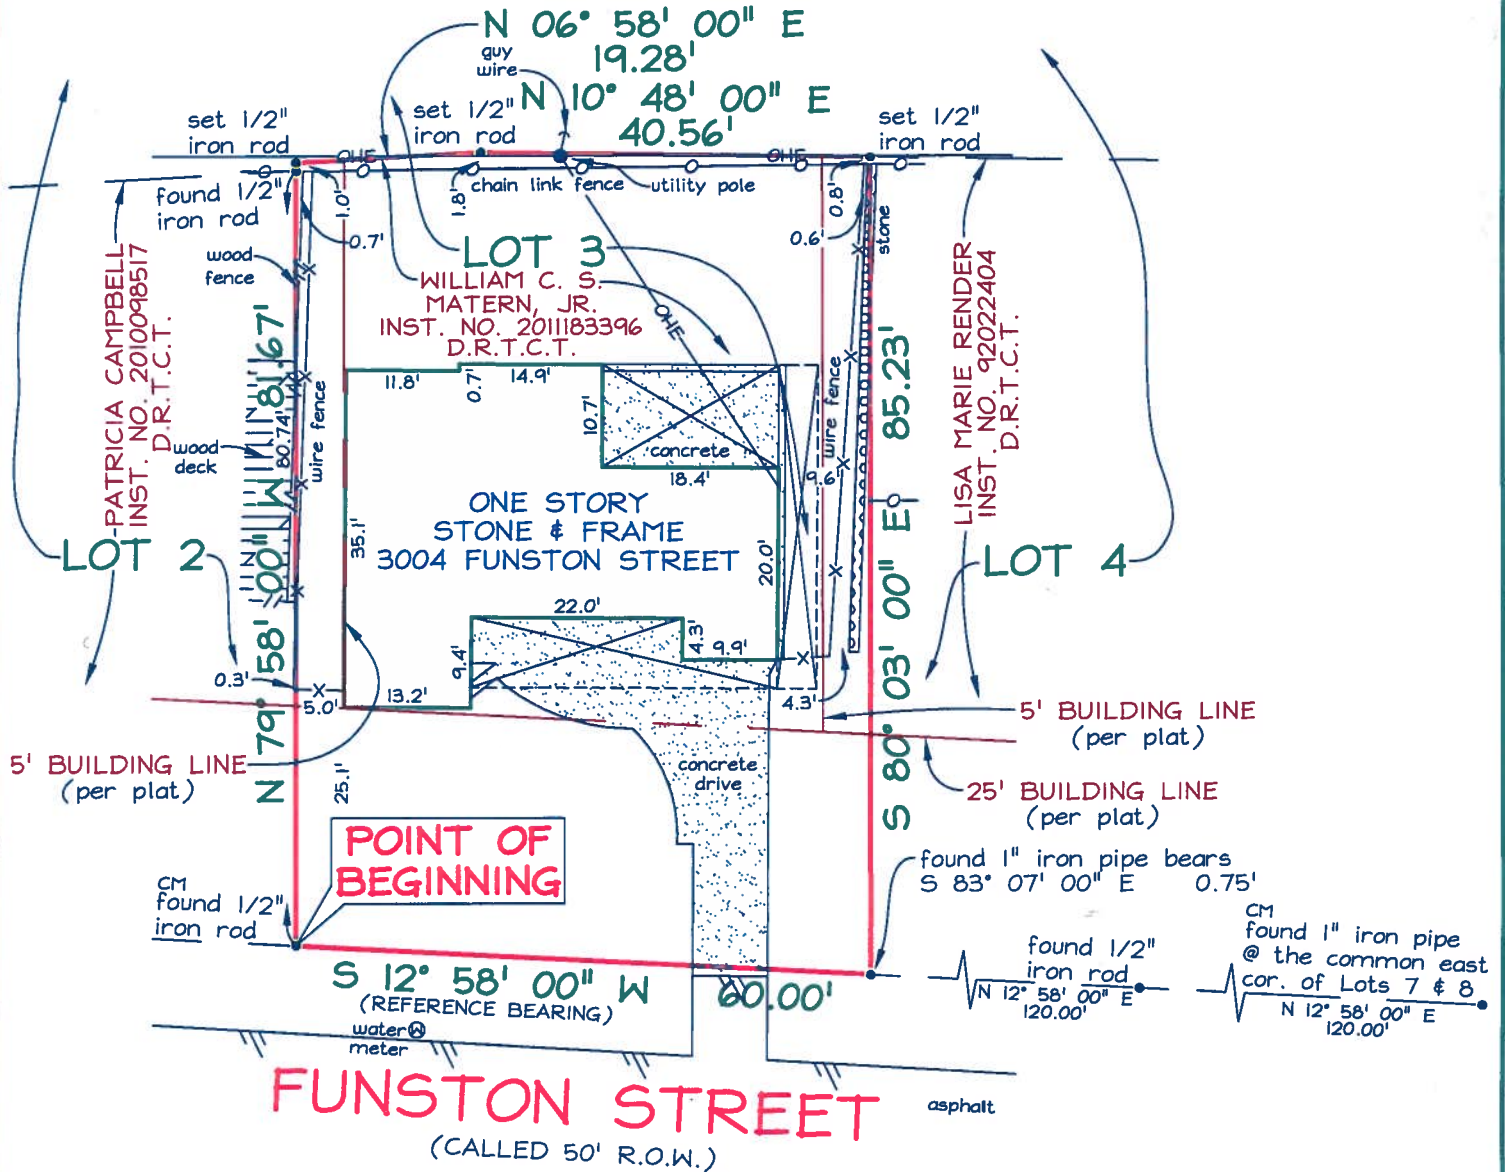 N 06° 58' 00" E
19.28'
guy
wire
N 10° 48' 00" E
40.56'
set 1/2"
iron rod
set 1/2"
iron rod
set 1/2"
iron rod
OHE
OHE
found 1/2"
iron rod
1.0'
1.8'
chain link fence
utility pole
0.8'
0.7'
0.6'
stone
wood
fence
LOT 3
WILLIAM C. S.
MATERN, JR.
INST. NO. 2011183396
D.R.T.C.T.
OHE
PATRICIA CAMPBELL
INST. NO. 2010098517
D.R.T.C.T.
LISA MARIE RENDER
INST. NO. 92022404
D.R.T.C.T.
N 79° 58' 00" W 81.67'
80.74'
wire fence
wood
deck
11.8'
0.7'
14.9'
10.7'
concrete
18.4'
wire fence
9.6'
S 80° 03' 00" E 85.23'
ONE STORY
STONE & FRAME
3004 FUNSTON STREET
35.1'
20.0'
LOT 2
LOT 4
22.0'
4.3'
9.9'
9.4'
0.3'
5.0'
13.2'
4.3'
5' BUILDING LINE
(per plat)
5' BUILDING LINE
(per plat)
25.1'
concrete
drive
25' BUILDING LINE
(per plat)
POINT OF
BEGINNING
CM
found 1/2"
iron rod
found 1" iron pipe bears
S 83° 07' 00" E 0.75'
found 1/2"
iron rod
N 12° 58' 00" E
120.00'
CM
found 1" iron pipe
@ the common east
cor. of Lots 7 & 8
N 12° 58' 00" E
120.00'
S 12° 58' 00" W 60.00'
(REFERENCE BEARING)
water W
meter
FUNSTON STREET
asphalt
(CALLED 50' R.O.W.)